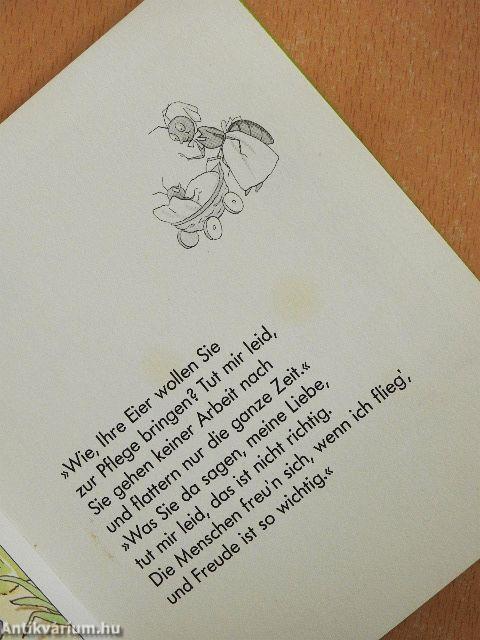 »Wie, Ihre Eier wollen Sie
zur Pflege bringen? Tut mir leid,
Sie gehen keiner Arbeit nach
und flattern nur die ganze Zeit.«
»Was Sie da sagen, meine Liebe,
tut mir leid, das ist nicht richtig.
Die Menschen freu'n sich, wenn ich flieg',
und Freude ist so wichtig.«
Antikvárium.hu